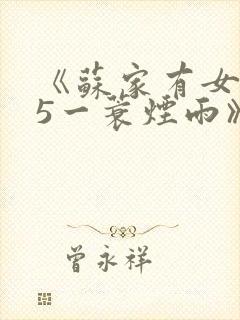 《蘇家有女
5一蓑煙雨》
曾永祥